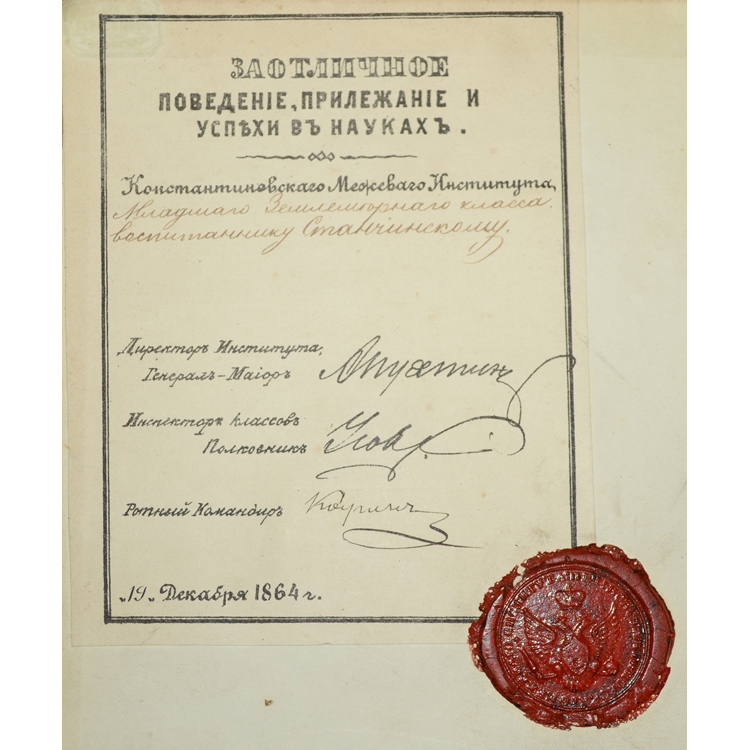 ЗАОТЛИЧНОЕ
ПОВЕДЕНІЕ, ПРИЛЕЖАНІЕ И
УСПѢХИ ВЪ НАУКАХЪ.
Константиновскаго Межеваго Института,
Младшаго Землемѣрнаго класса
воспитаннику Станчинскому.
Директоръ Института,
Генералъ-Маіоръ Апухтинъ
Инспекторъ классовъ
Полковникъ
Ротный Командиръ
„19„ Декабря 1864 г.